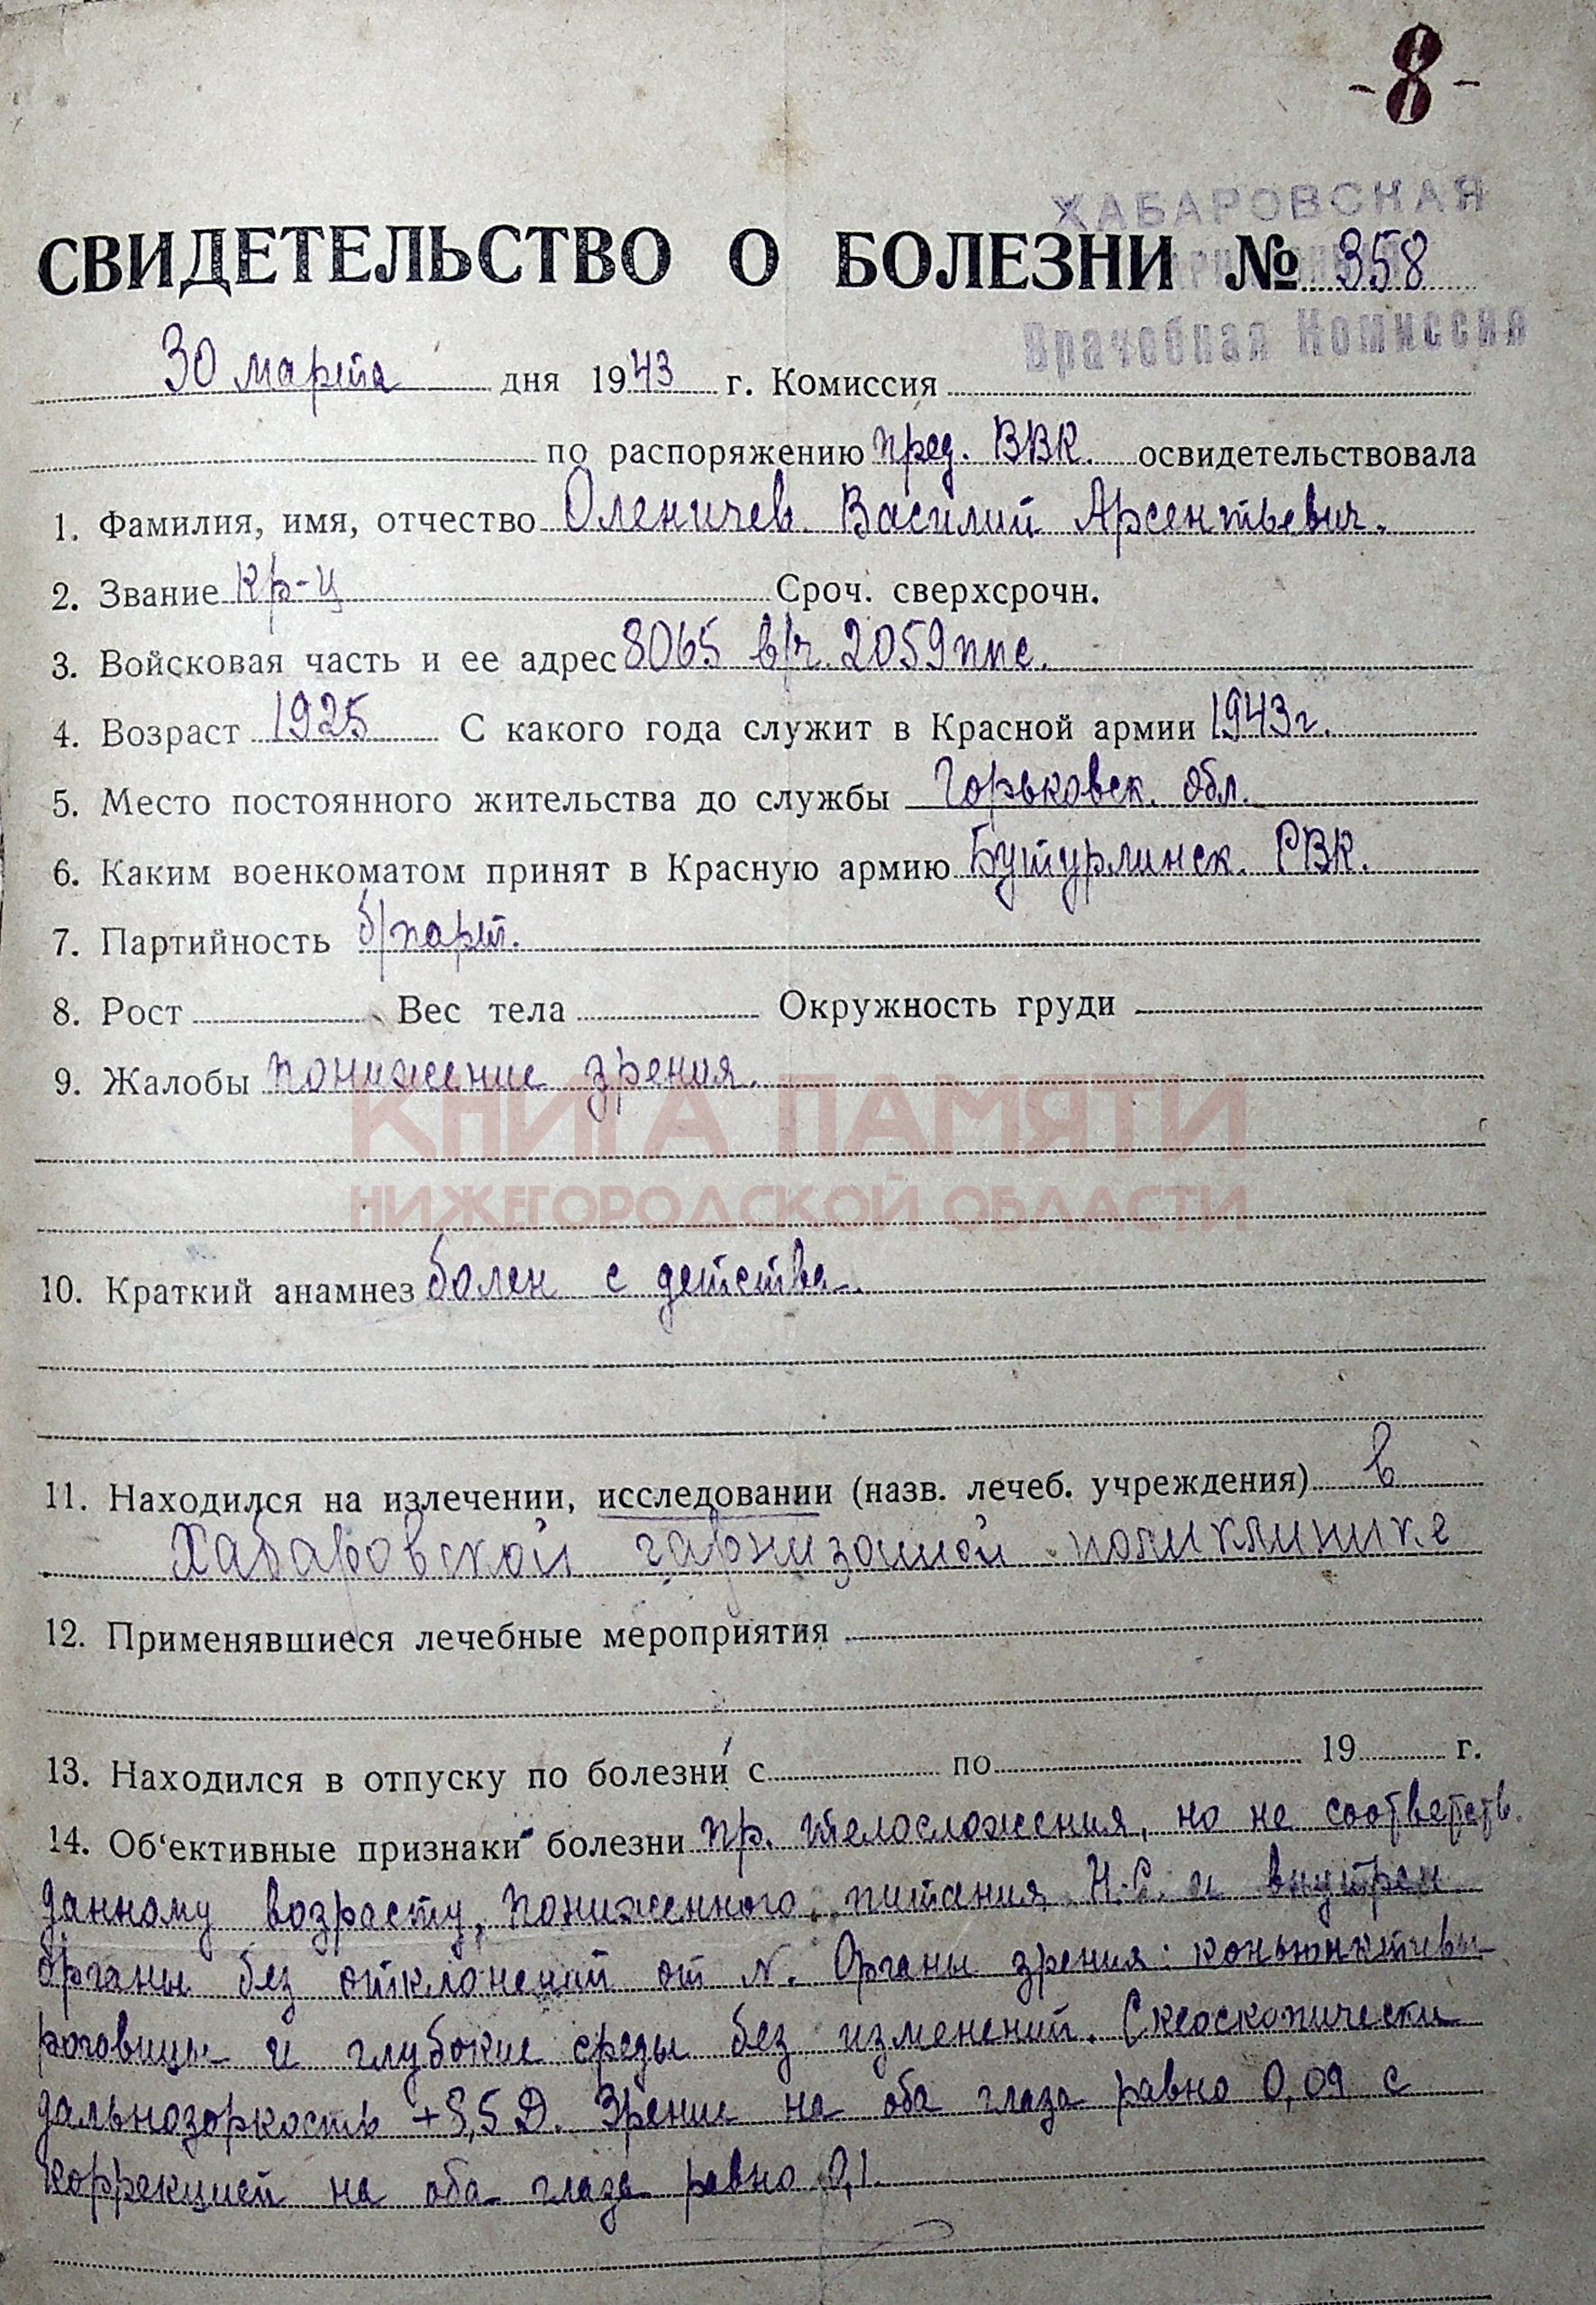 -8-
ХАБАРОВСКАЯ
СВИДЕТЕЛЬСТВО О БОЛЕЗНИ № 358
Врачебная Комиссия
30 марта дня 1943 г. Комиссия
по распоряжению пред. ВВК. освидетельствовала
1. Фамилия, имя, отчество Оленичев Василий Арсентьевич.
2. Звание кр-ц Сроч. сверхсрочн.
3. Войсковая часть и ее адрес 8065 в/ч 2059 ппс.
4. Возраст 1925 С какого года служит в Красной армии 1943 г.
5. Место постоянного жительства до службы Горьковск. обл.
6. Каким военкоматом принят в Красную армию Бутурлинск. РВК.
7. Партийность б/парт.
8. Рост Вес тела Окружность груди
9. Жалобы понижение зрения.
КНИГА ПАМЯТИ
НИЖЕГОРОДСКОЙ ОБЛАСТИ
10. Краткий анамнез болен с детства.
11. Находился на излечении, исследовании (назв. лечеб. учреждения) в
Хабаровской гарнизонной поликлинике
12. Применявшиеся лечебные мероприятия
13. Находился в отпуску по болезни с по 19 г.
14. Об‘ективные признаки болезни пр. телосложения, но не соответств.
данному возрасту, пониженного питания Н.С. и внутрен
органы без отклонений от N. Органы зрения: коньюнктивы
роговицы и глубокие среды без изменений. Скеаскопически
дальнозоркость Д. Зрение на оба глаза равно 0,09 с
коррекцией на оба глаза равно 0,1.